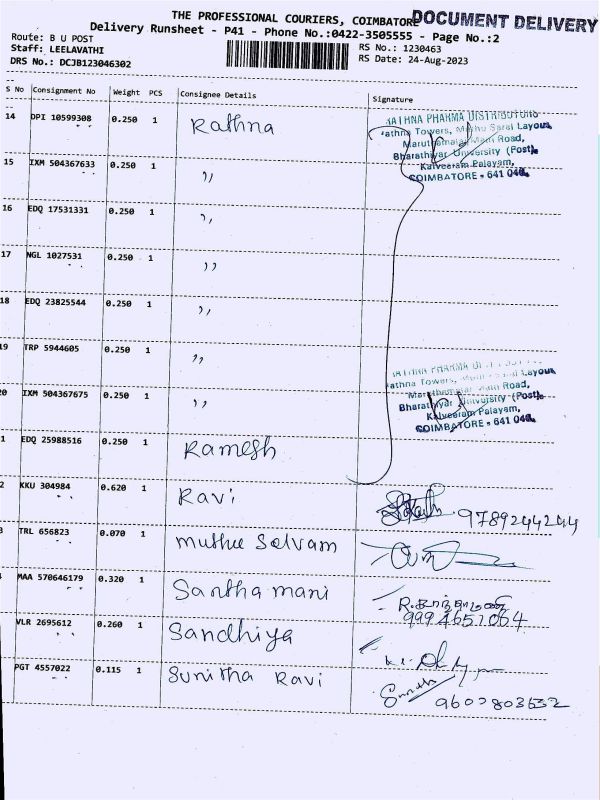 THE PROFESSIONAL COURIERS, COIMBATORE
DOCUMENT DELIVERY
Delivery Runsheet - P41 - Phone No.:0422-3505555 - Page No.:2
Route: B U POST
Staff: LEELAVATHI
DRS No.: DCJB123046302
RS No.: 1230463
RS Date: 24-Aug-2023
S No Consignment No Weight PCS Consignee Details Signature
14 DPI 10599308 0.250 1 Rathna
RATHNA PHARMA DISTRIBUTORS
Rathna Towers, Layout,
Maruthamalai Main Road,
Bharathiyar University (Post),
Kalveeram Palayam,
COIMBATORE - 641 046.
15 IXM 504367633 0.250 1 ,,
16 EDQ 17531331 0.250 1 ,,
17 NGL 1027531 0.250 1 ,,
18 EDQ 23825544 0.250 1 ,,
19 TRP 5944605 0.250 1 ,,
RATHNA PHARMA
Rathna Towers, Layout,
Maruthamalai Main Road,
Bharathiyar University (Post),
Kalveeram Palayam,
COIMBATORE - 641 046.
20 IXM 504367675 0.250 1 ,,
1 EDQ 25988516 0.250 1 Ramesh
2 KKU 304984 0.620 1 Ravi 9789244244
3 TRL 656823 0.070 1 muthu Selvam
MAA 570646179 0.320 1 Santhamani
9994651064
VLR 2695612 0.260 1 Sandhiya
PGT 4557022 0.115 1 Sunitha Ravi 9600803632